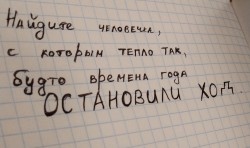 Найдите человечка,
с которым тепло так,
будто времена года
ОСТАНОВИЛИ ХОД.